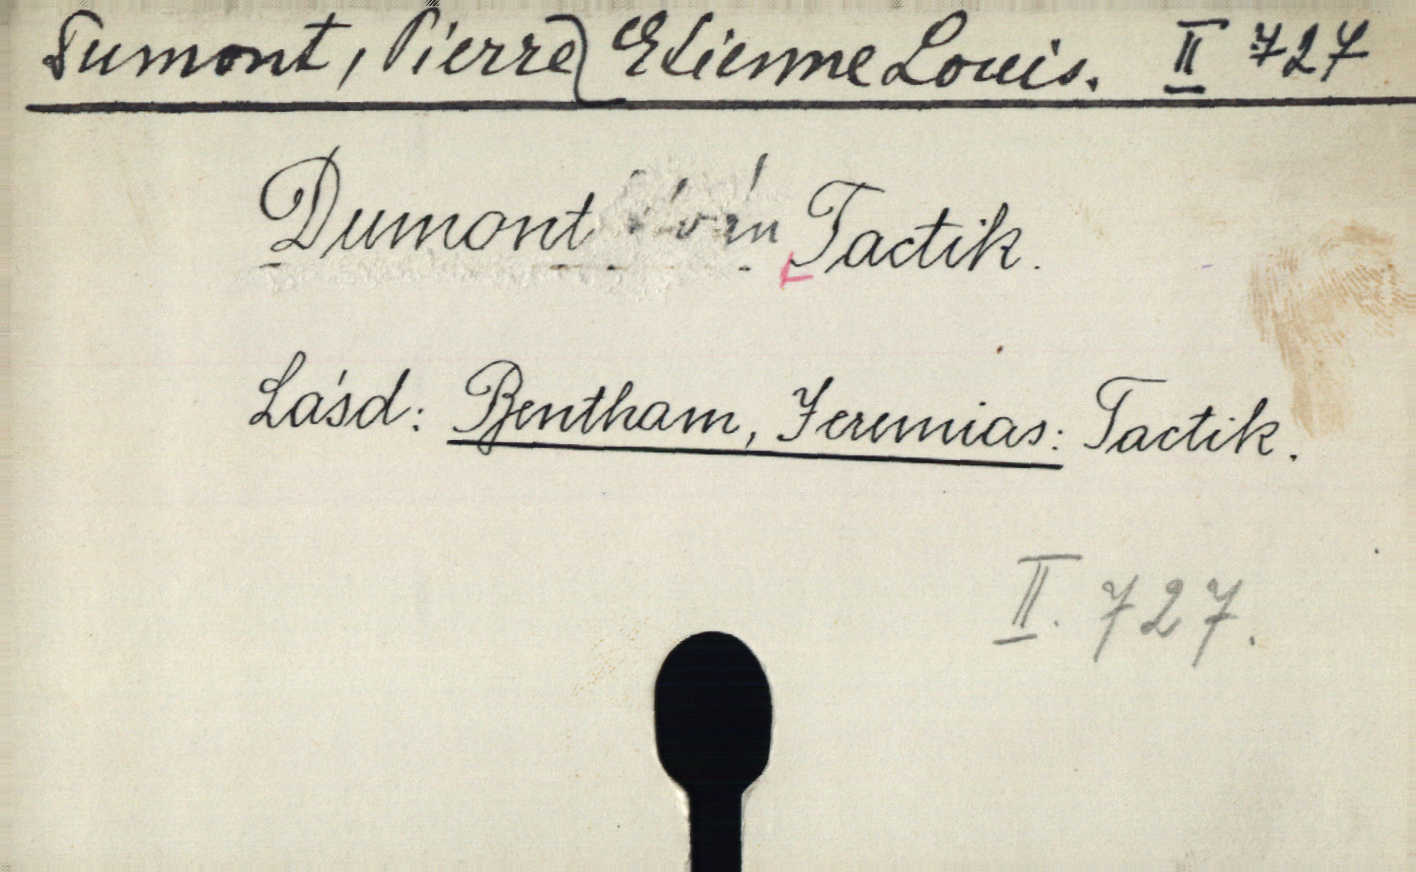 Dumont, Pierre) Etienne Louis. II 727
Dumont Tactik.
Lásd: Bentham, Jeremias: Tactik.
II. 727.